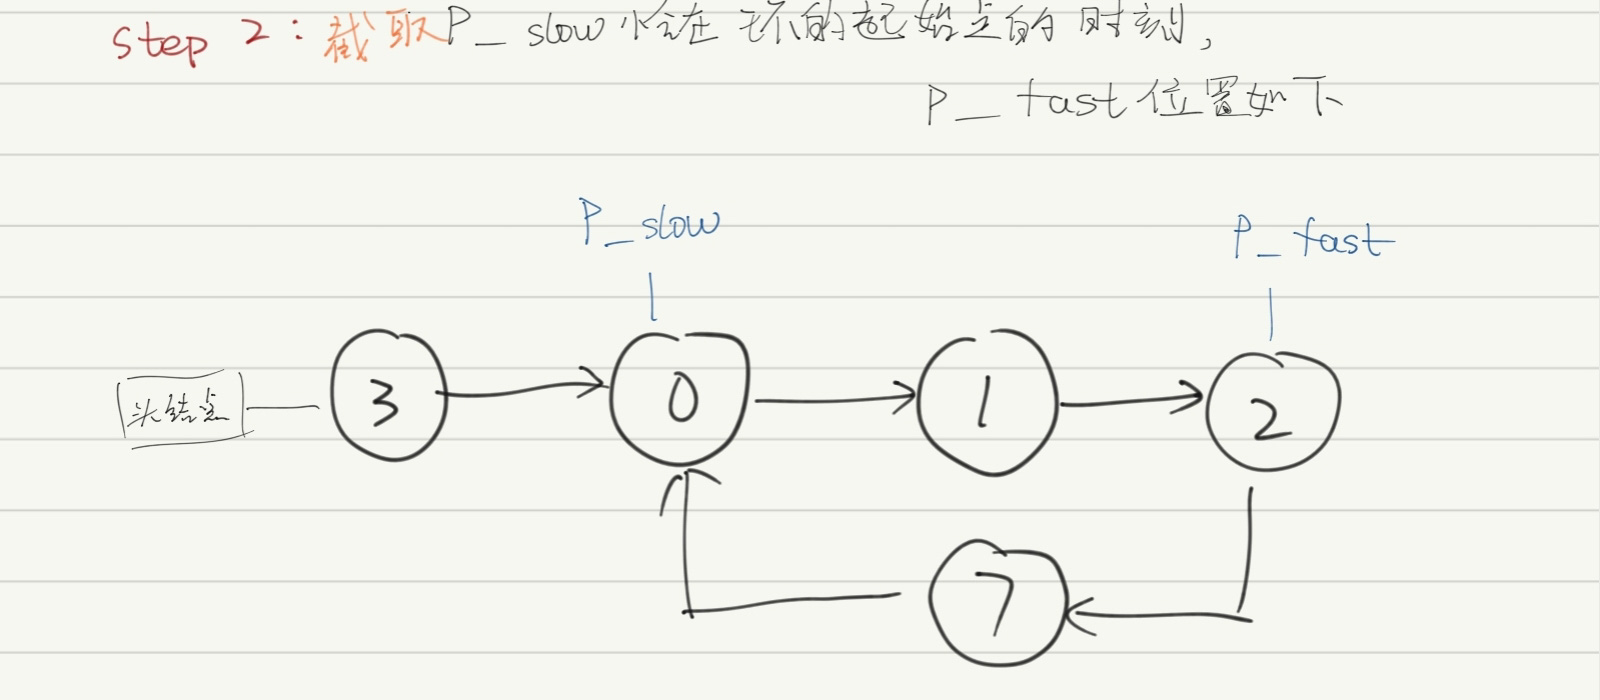 step 2：截取P_slow恰在环的起始点的时刻，
P_fast位置如下
P_slow
P_fast
头结点
3
0
1
2
7